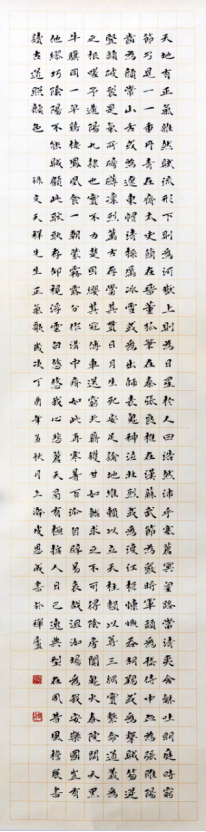 天地有正氣雜然賦流形下則為河嶽上則為日星於人曰浩然沛乎塞蒼冥皇路當清夷含和吐明庭時窮
節乃見一一垂丹青在齊太史簡在晉董狐筆在秦張良椎在漢蘇武節為嚴將軍頭為嵇侍中血為張睢陽
齒為顏常山舌或為遼東帽清操厲冰雪或為出師表鬼神泣壯烈或為渡江楫慷慨吞胡羯或為擊賊笏逆
豎頭破裂是氣所磅礴凜烈萬古存當其貫日月生死安足論地維賴以立天柱賴以尊三綱實繫命道義為
之根嗟予遘陽九隸也實不力楚囚纓其冠傳車送窮北鼎鑊甘如飴求之不可得陰房闃鬼火春院閟天黑
牛驥同一皁雞棲鳳凰食一朝蒙霧露分作溝中瘠如此再寒暑百沴自辟易哀哉沮洳場為我安樂國豈有
他繆巧陰陽不能賊顧此耿耿存仰視浮雲白悠悠我心悲蒼天曷有極哲人日已遠典型在夙昔風檐展書
讀古道照顏色 錄文天祥先生正氣歌歲次丁酉年孟秋月上澣皮恩成書於禪廬